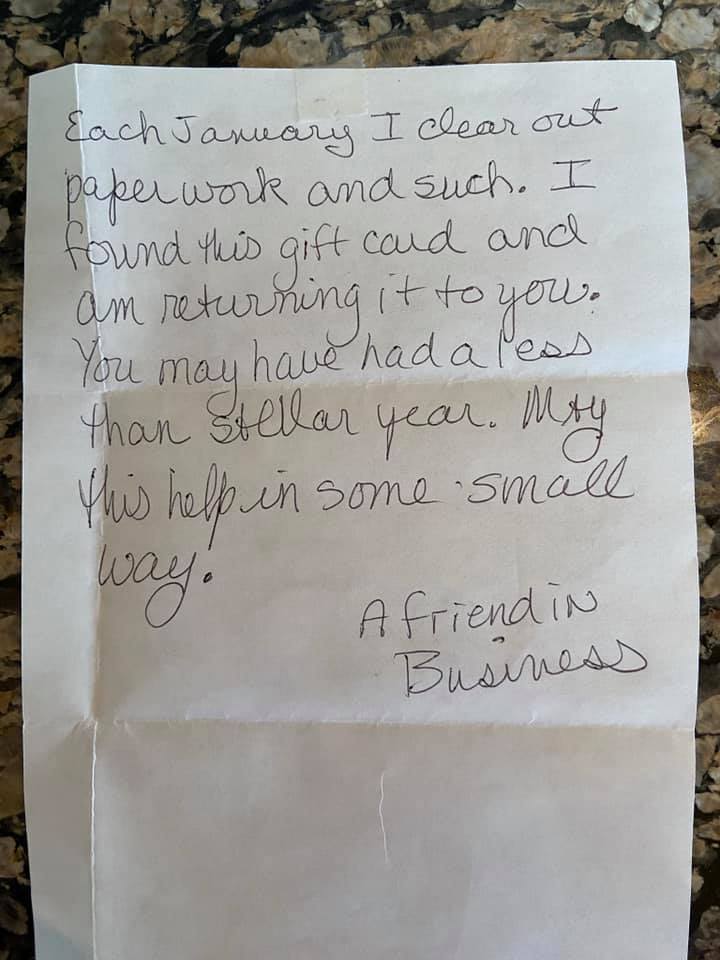 Each January I clear out
paperwork and such. I
found this gift card and
am returning it to you.
You may have had a less
than stellar year. May
this help in some small
way.
A friend in
Business